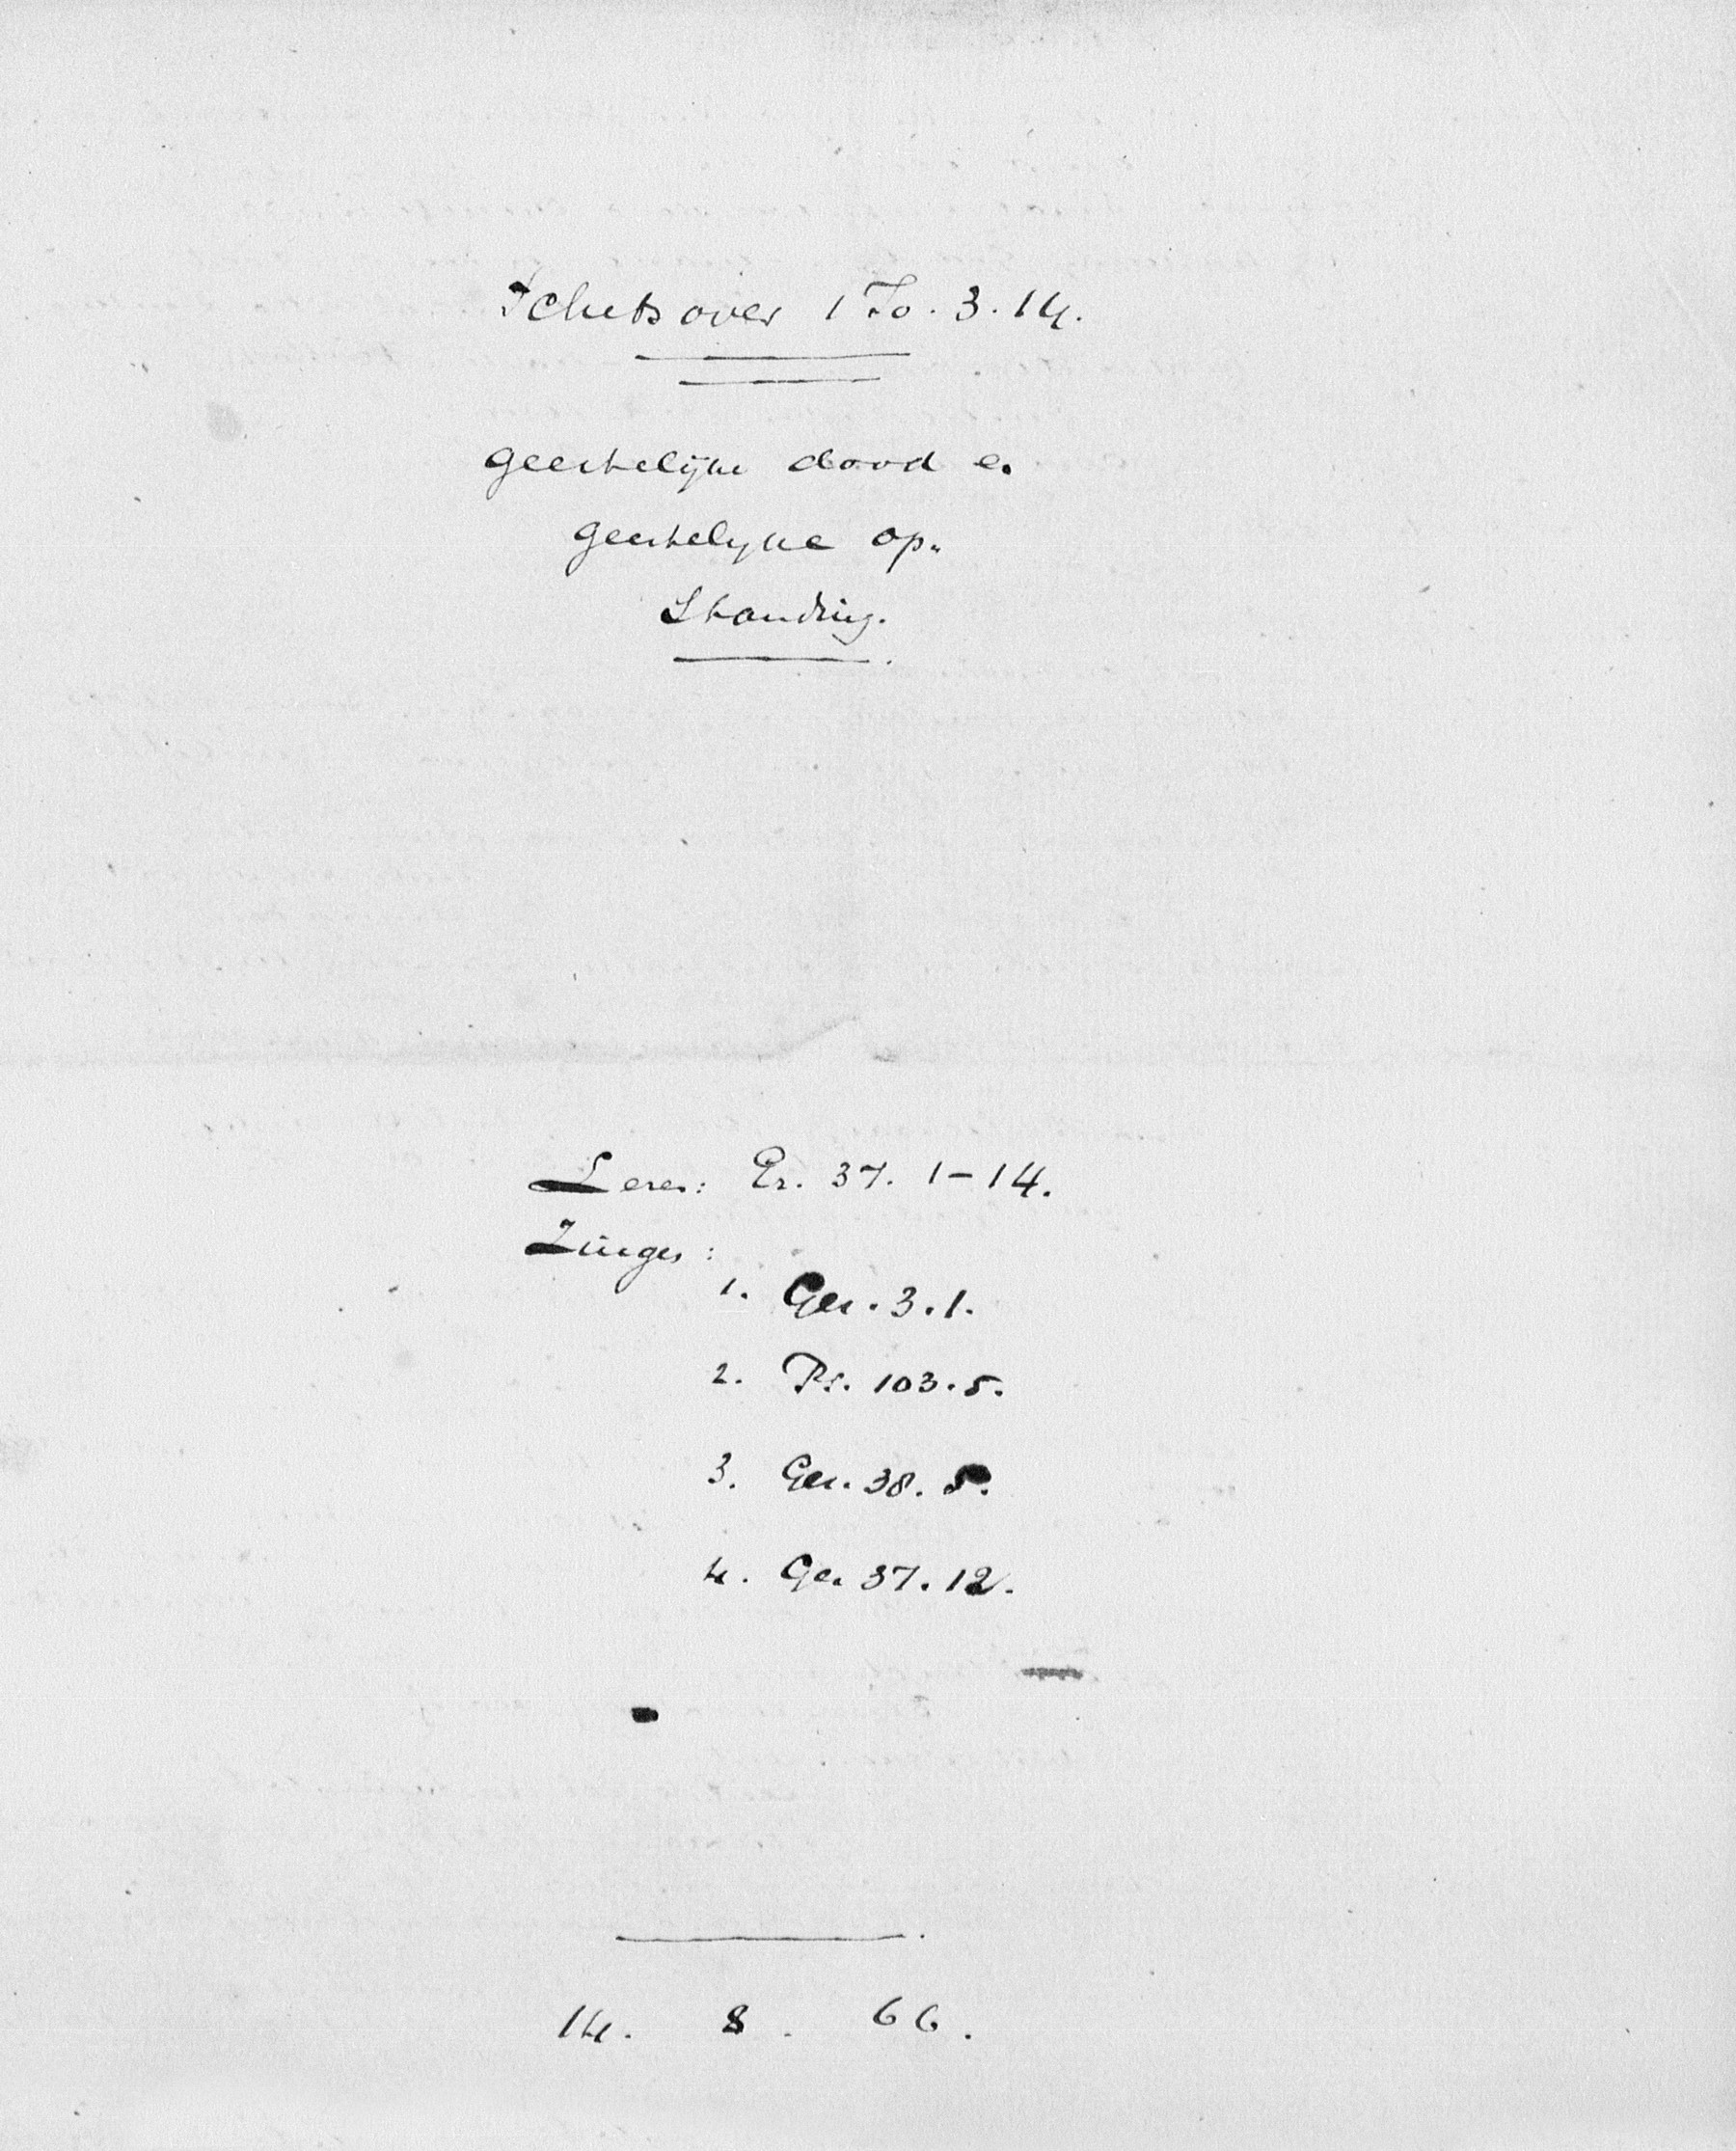 Schets over 1 Jo. 3. 14.
geestelijke dood en
geestelyke op„
standing.
Lezen: Ez. 37. 1-14.
Zingen:
1. Gez. 3. 1.
2. Ps. 103. 5.
3. Gez. 38. 5.
4. Gez. 37. 12.
14. 8. 66.